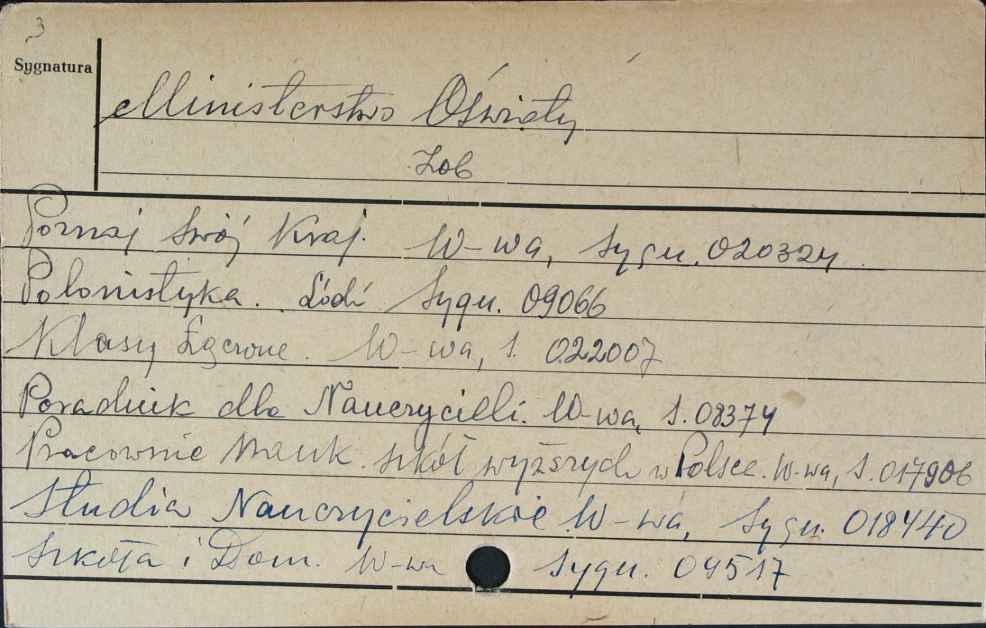 3
Sygnatura
Ministerstwo Oświaty
Zob
Poznaj Swój Kraj. W-wa, Sygn. 020324
Polonistyka. Łódź Sygn. 09066
Klasy Łączone. W-wa, S. 022007
Poradnik dla Nauczycieli. W-wa, S. 08374
Pracownie Nauk. szkół wyższych w Polsce. W-wa, S. 017906
Studia Nauczycielskie W-wa, Sygn. 018440
Szkoła i Dom. W-wa Sygn. 09517